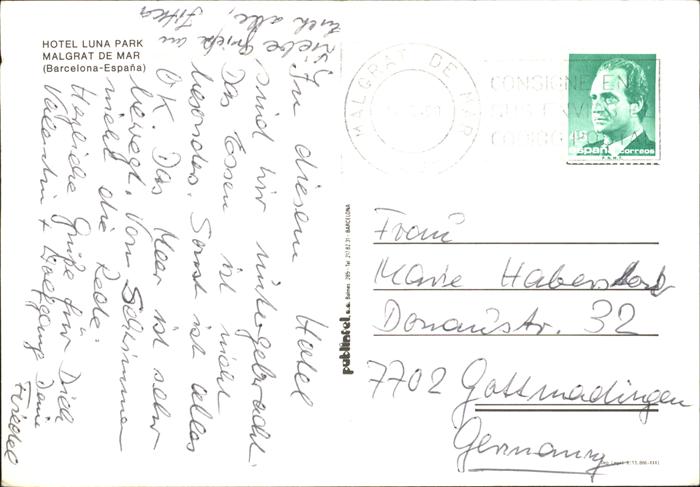 HOTEL LUNA PARK
MALGRAT DE MAR
(Barcelona-España)
In diesem Hotel
sind wir untergebracht.
Das Essen ist nicht
besonders. Sonst ist alles
OK. Das Meer ist sehr
bewegt. Vom Schwimmen
nicht die Rede.
Herzliche Grüße für Dich
Valentin + Wolfgang Deine
Friedel
Liebe Grüße an
Euch alle,
MALGRAT DE MAR
CONSIGNE EN
SUS ENVIOS
CODIGO POSTAL
45
españa correos
F.N.M.T.
publintel, s.a. Balmes, 285 - Tel. 217 82 31 - BARCELONA
Frau
Marie Haberstock
Donaustr. 32
7702 Gottmadingen
Germany